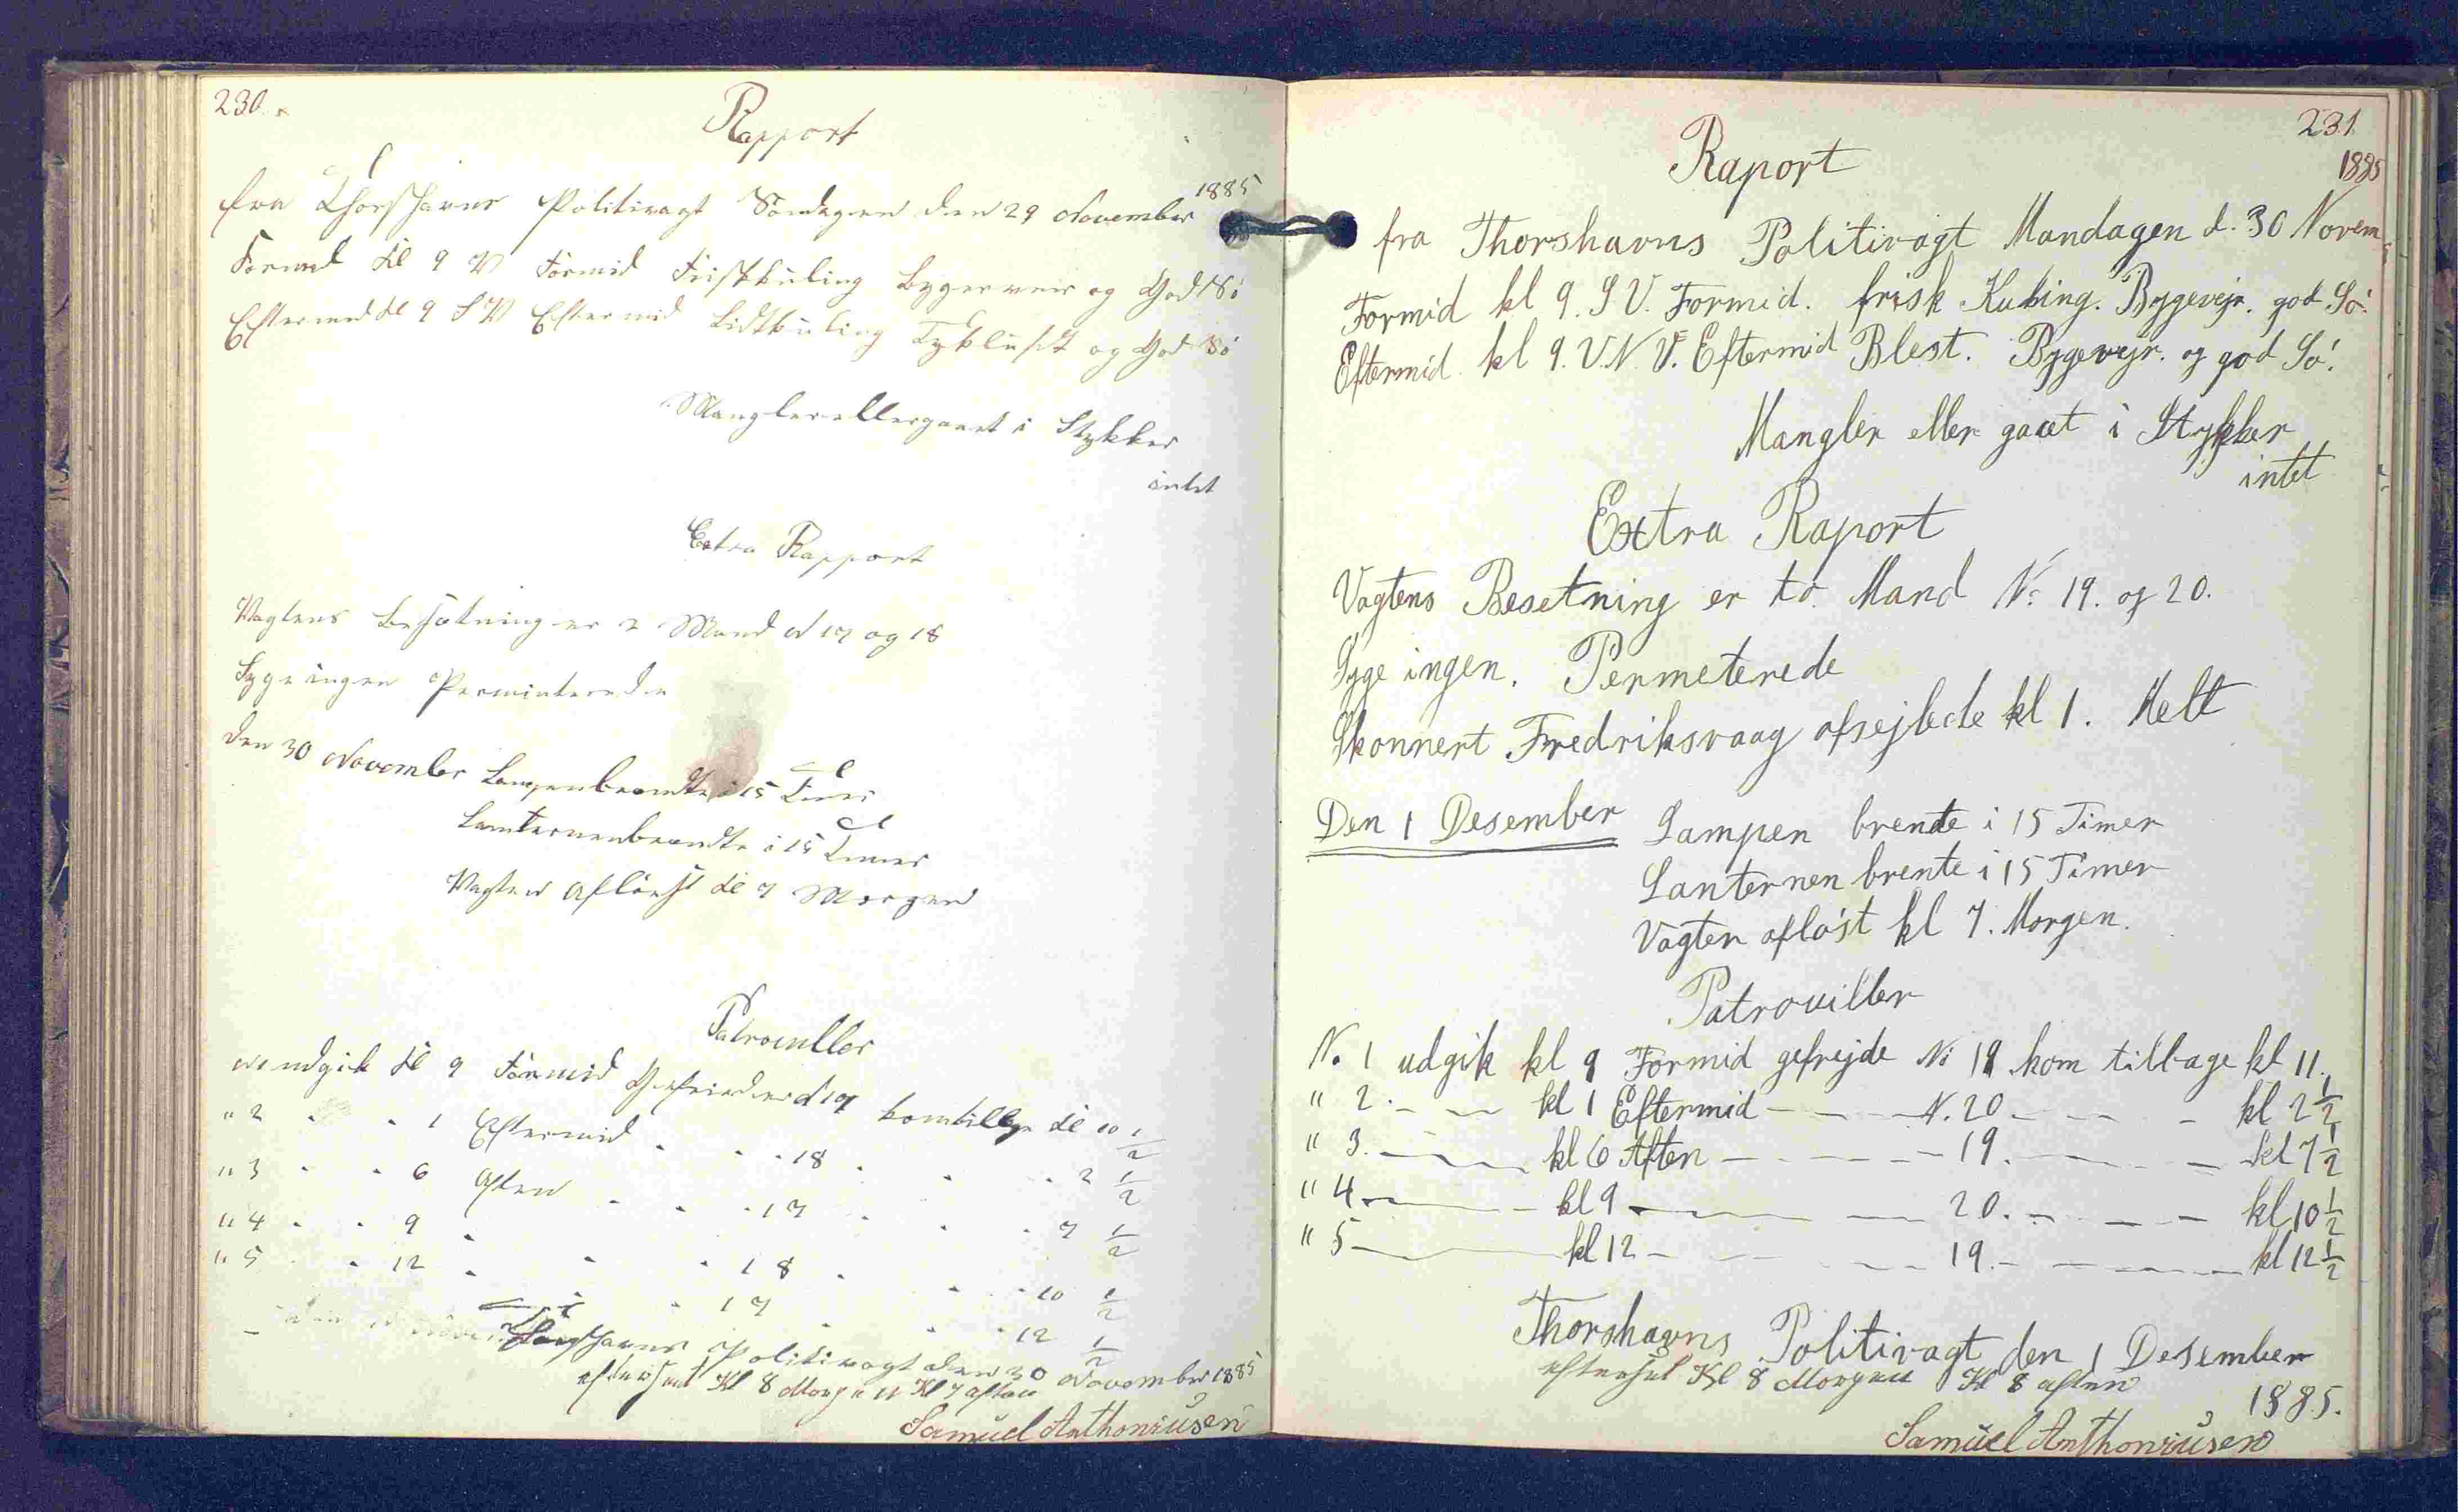 230.
Rapport
fra Thorshavns Politivagt Søndagen den 29 November 1885
Formd kl 9 V Formid Friskkuling Bygerveir og God Sö
Eftermd kl 9 SV Eftermid Lidtkuling Tykluft og God Sö
Mangler eller gaaet i Stykker
intet
Extra Rapport
Vagtens Besætning er 2 Mand N 17 og 18
Syge ingen Perminterede
Den 30 November Lampen brændte i 15 Timer
Lanternen brændte i 15 Timer
Vagten Aflöst kl 7 Morgen
Patrouiller
N 1 udgik kl 9 Formid Gefreider N 17 kom tilbage kl 10 1/2
" 2 " " 1 Eftermid " " 18 " " " 2 1/2
" 3 " " 6 Aften " " 17 " " " 7 1/2
" 4 " " 9 " " " 18 " " " 10 1/2
" 5 " " 12 " " " 17 " " " 12 1/2
Thorshavns Politivagt den 30 November 1885
efterset Kl 8 Morgen Kl 7 aften
Samuel Anthoniusen
231.
1885
Raport
fra Thorshavns Politivagt Mandagen d. 30 Novem
Formid kl 9. S V. Formid. frisk Kuling. Bygevejr. god Sö.
Eftermid. kl 9. V. N. V. Eftermid Blest. Bygevejr. og god Sö.
Mangler eller gaaet i Stykker
intet
Extra Raport
Vagtens Besetning er to Mand No 19. og 20.
Syge ingen. Permeterede
Skonnert Fredriksvaag afsejlede kl 1. Melt
Den 1 Desember Lampen brente i 15 Timer
Lanternen brente i 15 Timer
Vagten afløst kl 7. Morgen.
Patrouiller
N. 1 udgik kl 9 Formid gefrejde No 19 kom tilbage kl 11.
" 2. — — kl 1 Eftermid — — N. 20 — — kl 2 1/2
" 3. — — kl 6 Aften — — — 19. — — — kl 7 1/2
" 4 — — kl 9 — — — 20. — — — kl 10 1/2
" 5 — — kl 12 — — — 19. — — — kl 12 1/2
Thorshavns Politivagt den 1 Desember
1885.
efterset Kl 8 Morgen Kl 8 aften
Samuel Anthoniusen